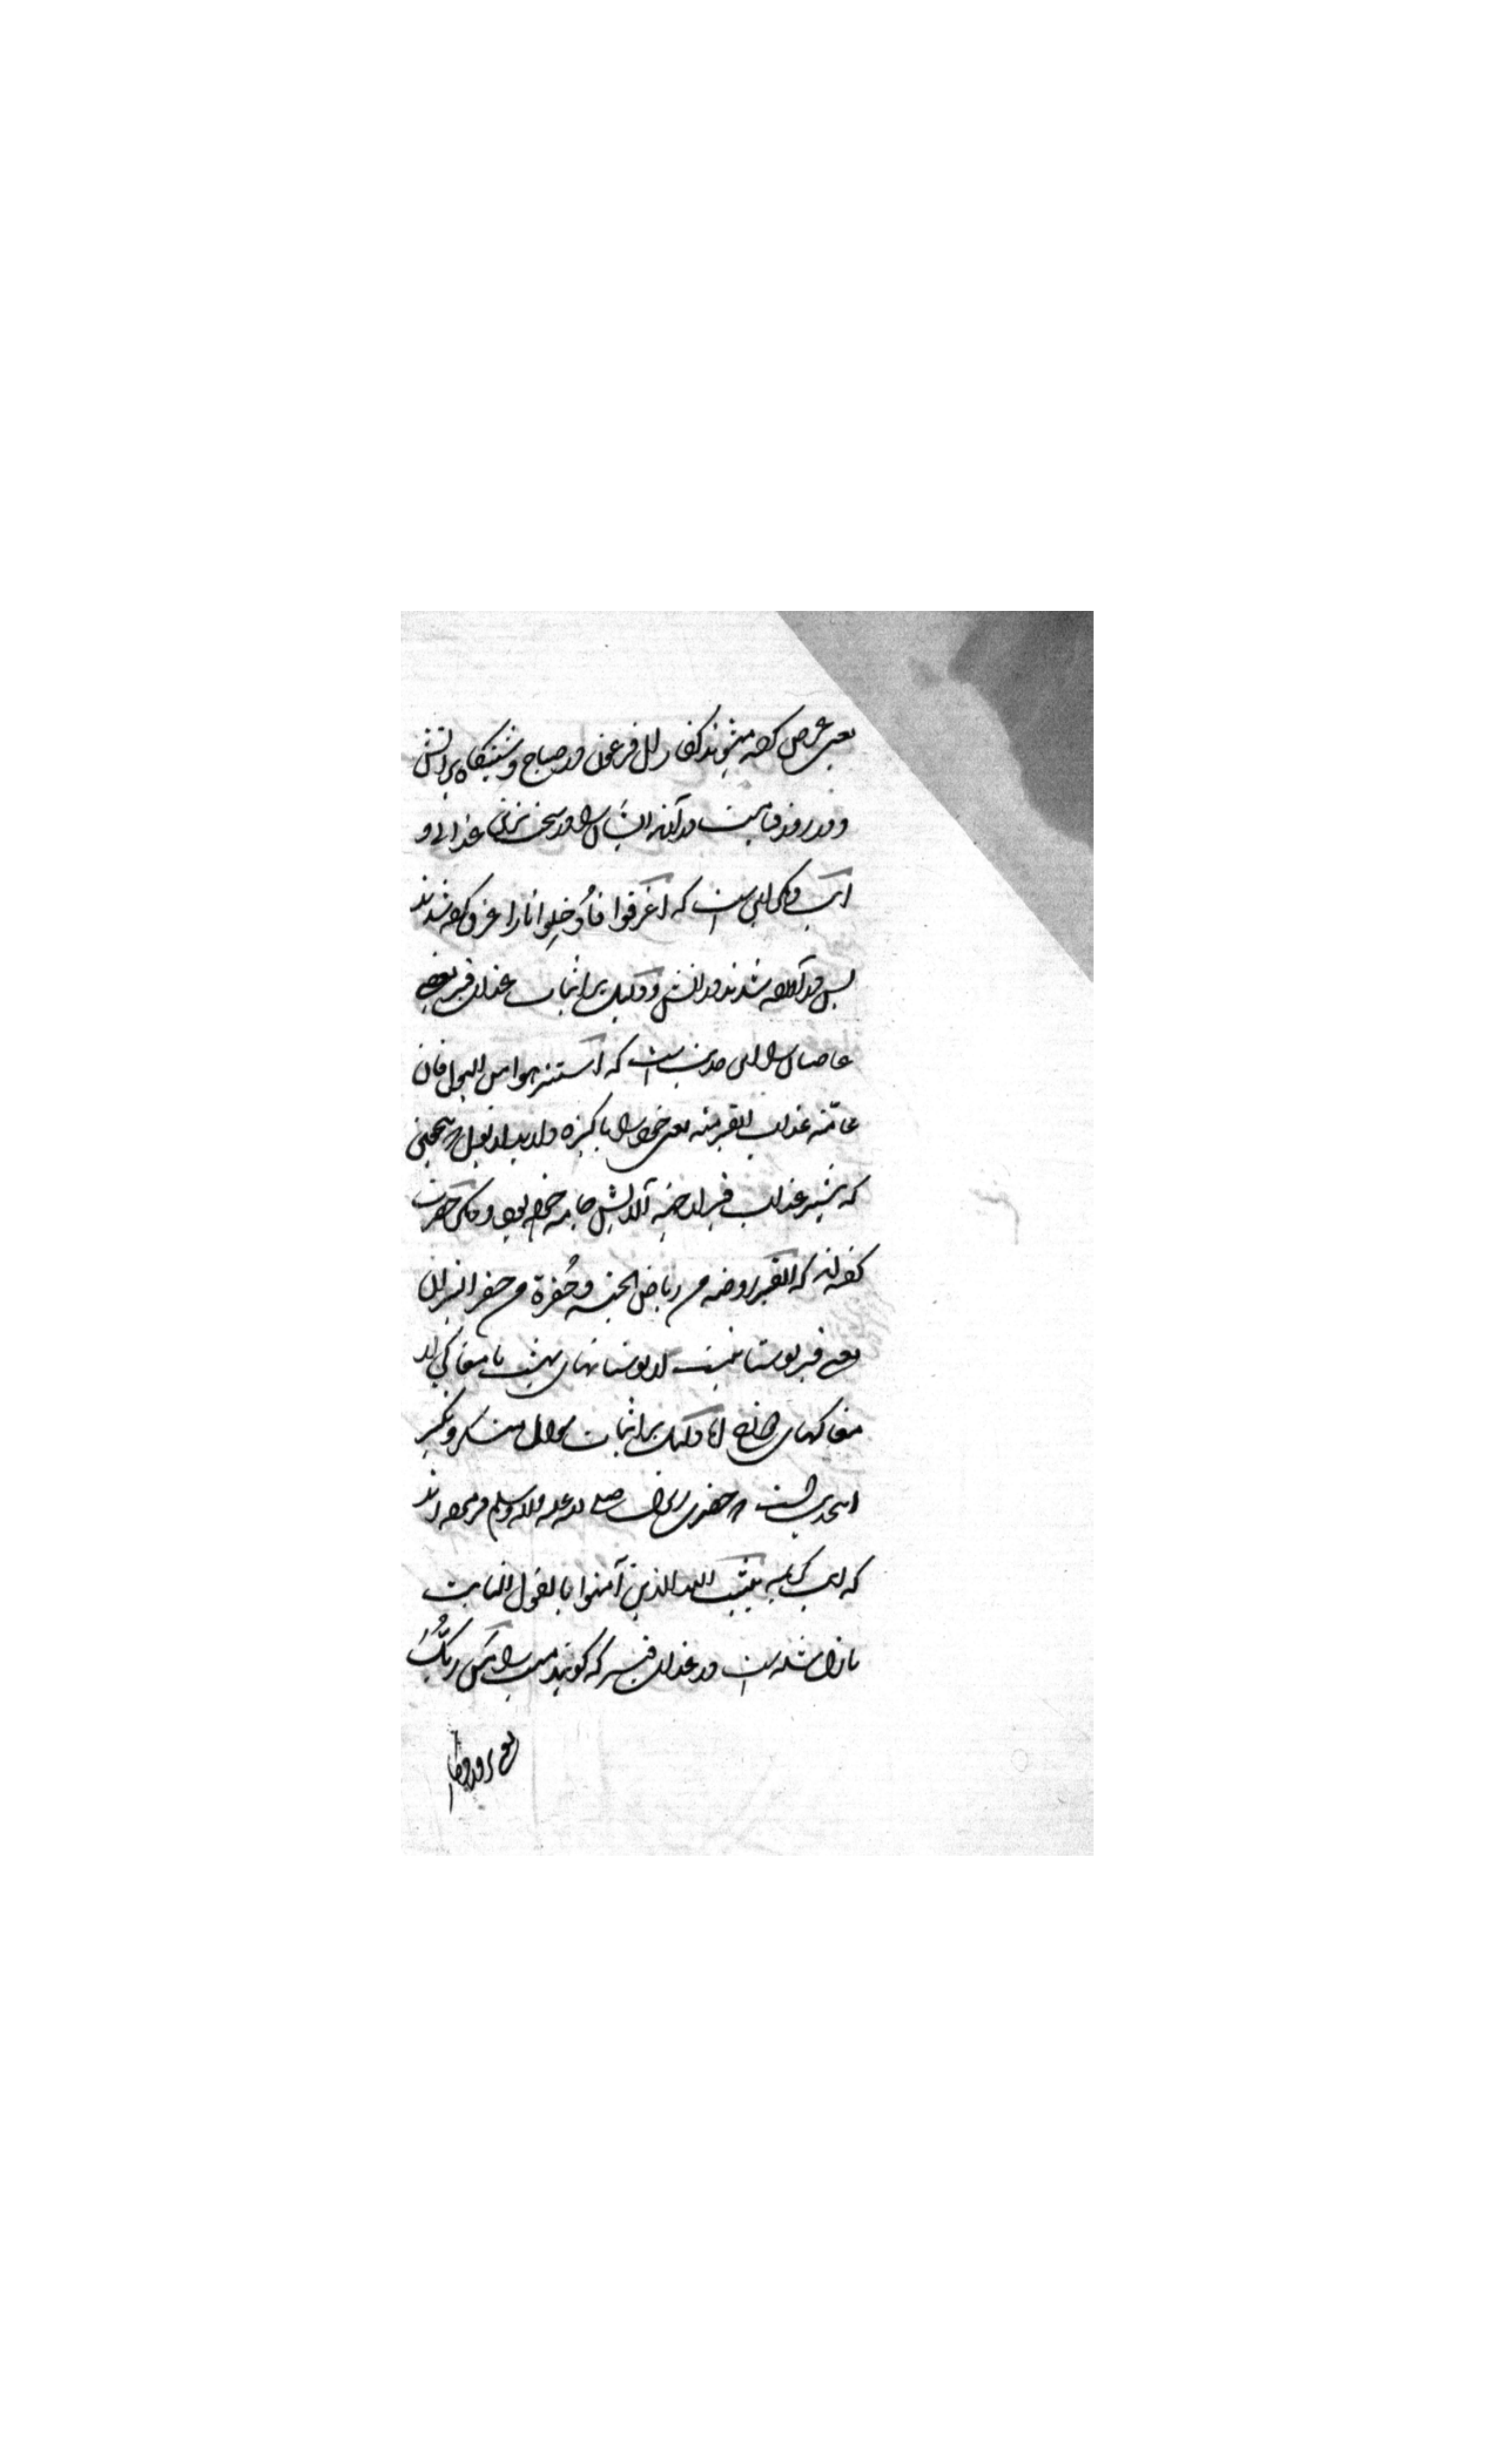 یعنی عرض کرده میشوند کفار و ال فرعون در صباح و شبنگاه بر آتش
و در روز قیامت در آرند ایشان را در سخت ترین عذابی و
ایت دیگر این است که اغرقوا فَاُدْخِلوا نارا غرق کرده شدند
پس در آورده شدند در آتش و دلیل بر اثبات عذاب قبر بعضی
عاصیان را این حدیث است که استنزهوا من البول فان
عامّة عذاب القبر منه یعنی خود را پاکیزه دارید از بول
که بیشتر عذاب قبر از جهة آلایش جامه خواهد بود و دیگر حضرت
گفته اند که القبر روضه من ریاض الجنه و حُفرة من حفر النیران
یعنی قبر بوستانیست از بوستانهای بهشت یا مغاکی از
مغاکهای دوزخ اما دلیل بر اثبات سوال منکر و نکیر
اینحدیث است که حضرت رسول صلی الله علیه و اله و سلم فرموده اند
که این کریمه یثبّت الله الذین آمنوا بالقول الثابت
نازل شده است در عذاب قبر که گویند میت را مَن ربُّکَ